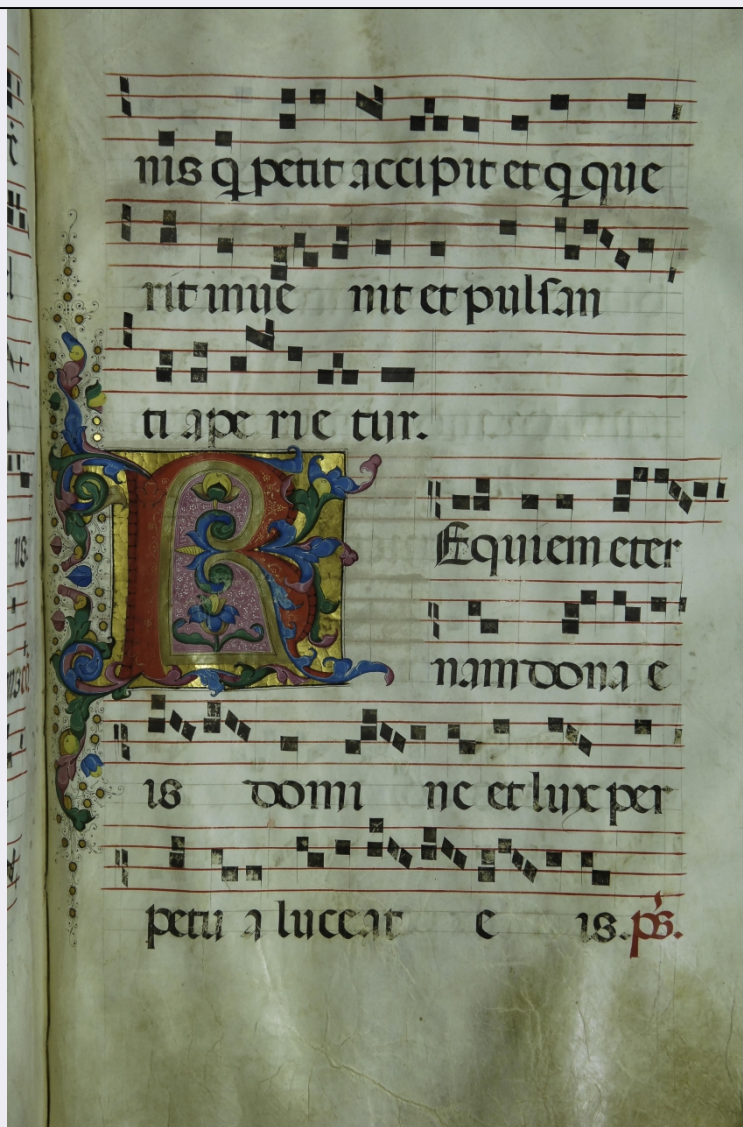 nis q petit accipit et q que
rit inue nit et pulsan
ti ape rie tur.
REquiem eter
nam dona e
is domi ne et lux per
petu a luceat e is. ps.